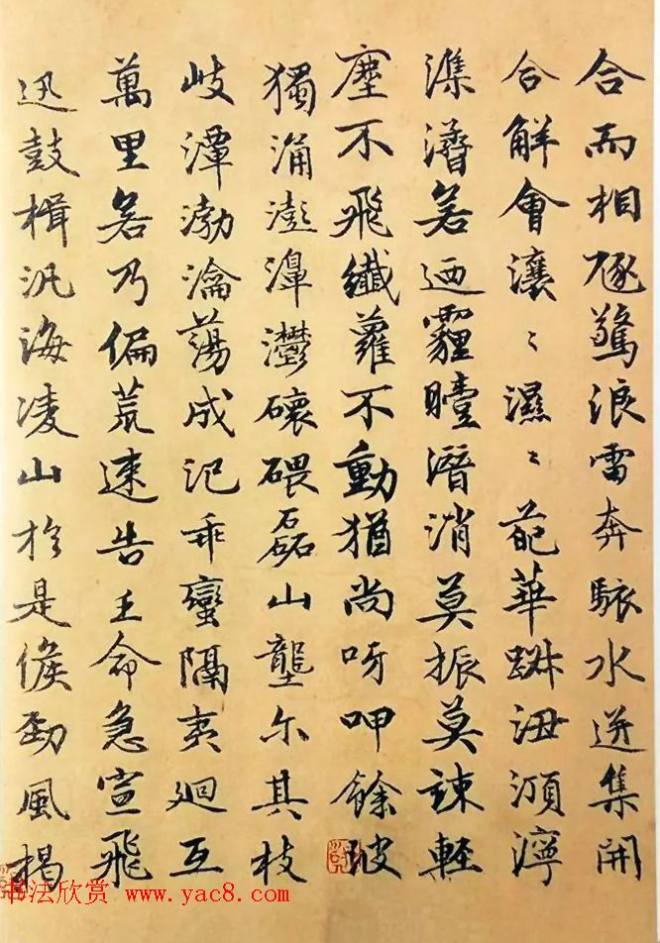 合而相豗驚浪雷奔駭水迸集開
合解會瀼〻濕〻葩華踧沑澒濘
潗㵫若迺霾曀潛消莫振莫竦輕
塵不飛纖蘿不動猶尚呀呷餘波
獨涌澎濞灪磙碨磊山壟尔其枝
岐潭渤瀹蕩成汜乖蠻隔夷廻互
萬里若乃偏荒速告王命急宣飛
迅鼓楫汎海凌山於是候勁風揭
书法欣赏 www.yac8.com